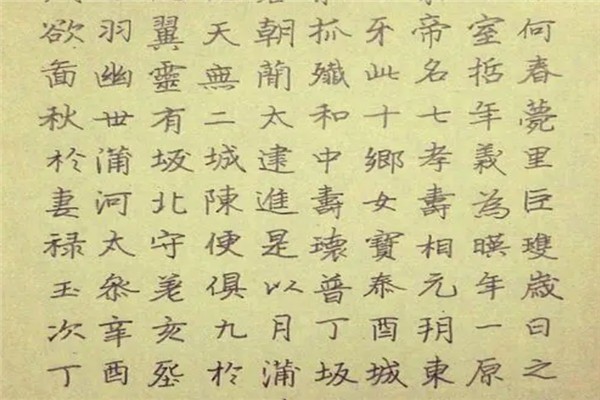 何春薨里巨歲曰之
室哲年義為暎年一原
帝名七孝壽相元玥東
牙此十鄉女寶泰酉城
抓殲和中壽瓌普丁坂
朝蘭太逮進是以月蒲
天無二城陳便俱九於
翼靈有坂北守亥
羽幽世蒲河太叅辛酉
欲秋於妻禄玉次丁